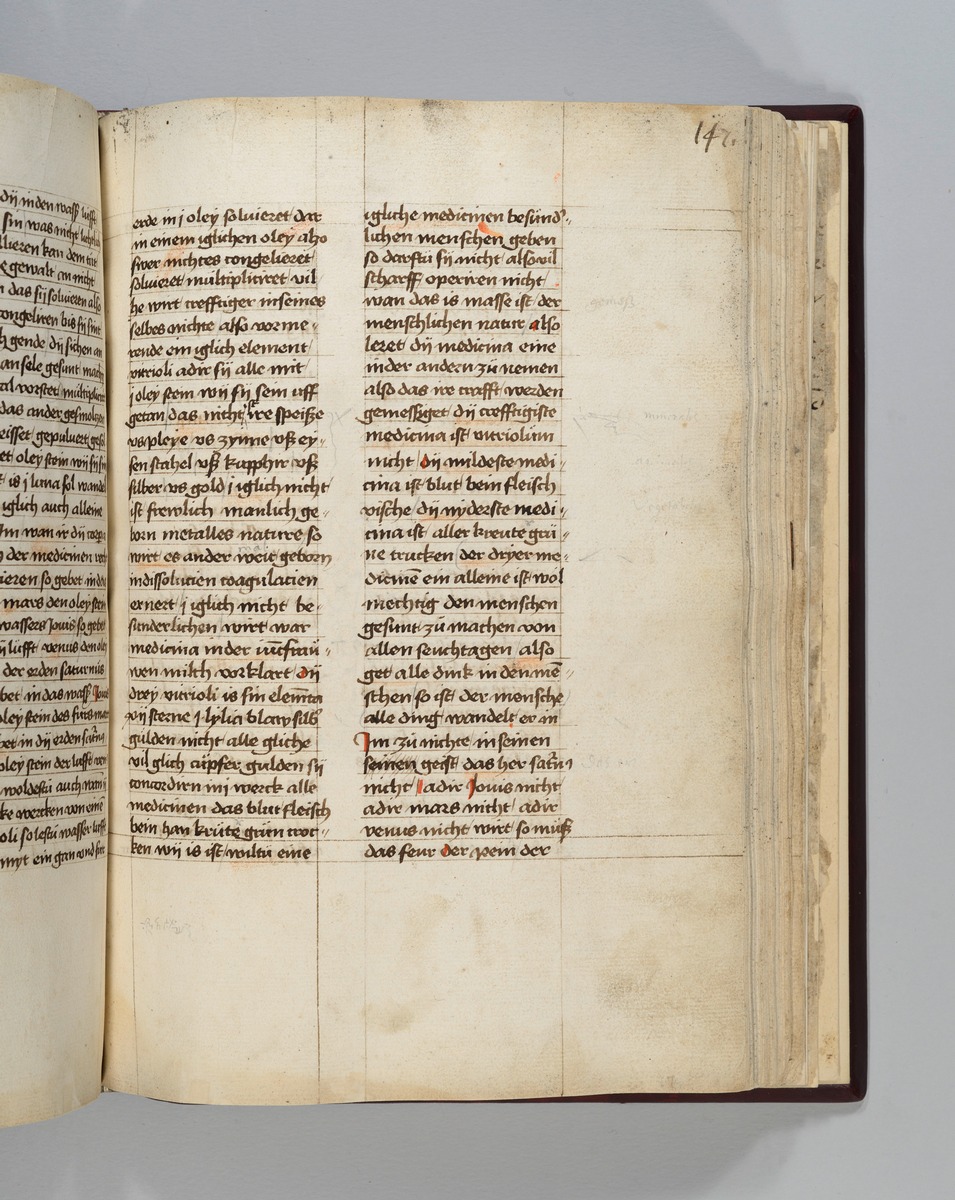 147.
dij in den wass lufft
sin was nicht
lieren kan dem
gewalt an nicht
das sij solvieren also
congeliren bis sij sint
gende dij sichen an
an sele gesunt mach
vorstet multiplicir
das ander gesmoltzen
gepulvert
oley stein wij sij sin
is j luna sol wande
iglich auch alleine
Im wan ir dij
der medicinen
ieren so gebet in
mars den oley stein
wassers Jovis so gebet
lufft venus den
der erden saturnus
bet in das wass Jovis
oley stein des furs mar
in dij erden satn
oley stein der lufft
woldestu auch
wercken von eine
oli solestu wasser lufft
myt ein gan vnd
erde in j oley solvieret dar
in einem iglichen oley also
swer nichtes congelieret
solvieret multipliciret vil
he wirt crefftiger in seines
selbes nichte also vorme-
rende ein iglich element
vitrioli adir sij alle mit
j oley stein wij sij sein uff
getan das nicht ire speiße
vs pleye vs zynne vß ey-
sen stahel vß kupphir vß
silber vs gold j iglich nicht
ist frewlich manlich ge-
born metalles nature so
wirt es ander weit geborn
in dissolucien coagulacien
ernert j iglich nicht be-
sunderlichen wirt war
medicina in der iucfrau-
wen milch vorklaret dij
drey vitrioli is sin elemta
xij sterne j lylia blaw silb
gulden nicht alle gliche
vil glich cupfer gulden sij
concordirn in j werck alle
medicinen das blut fleisch
bein han krute grun troc-
ken wij is ist wultu eine
igliche medicinen besund-
lichen menschen geben
so darftu sij nicht also vil
scharff operiren nicht
wan das is masse ist der
menschlichen natur also
lezet dij medicina eine
in der andern zu nemen
also das ire crafft werden
gemessiget dij crefftigiste
medicina ist vitriolum
nicht dij mildeste medi-
cina ist blut bein fleisch
vische dij nyderste medi-
cina ist aller kreute gru-
ne trucken der dryer me-
dicine ein alleine ist wol
mechtig den menschen
gesunt zu machen von
allen seuchtagen also
get alle dink in den me-
schen so ist der mensche
alle ding wandelt er in
Im zu nichte in seinen
seinen geist das her satn
nicht adir Jovis nicht
adir mars nicht adir
venus nicht wirt so muß
das feur der pein der